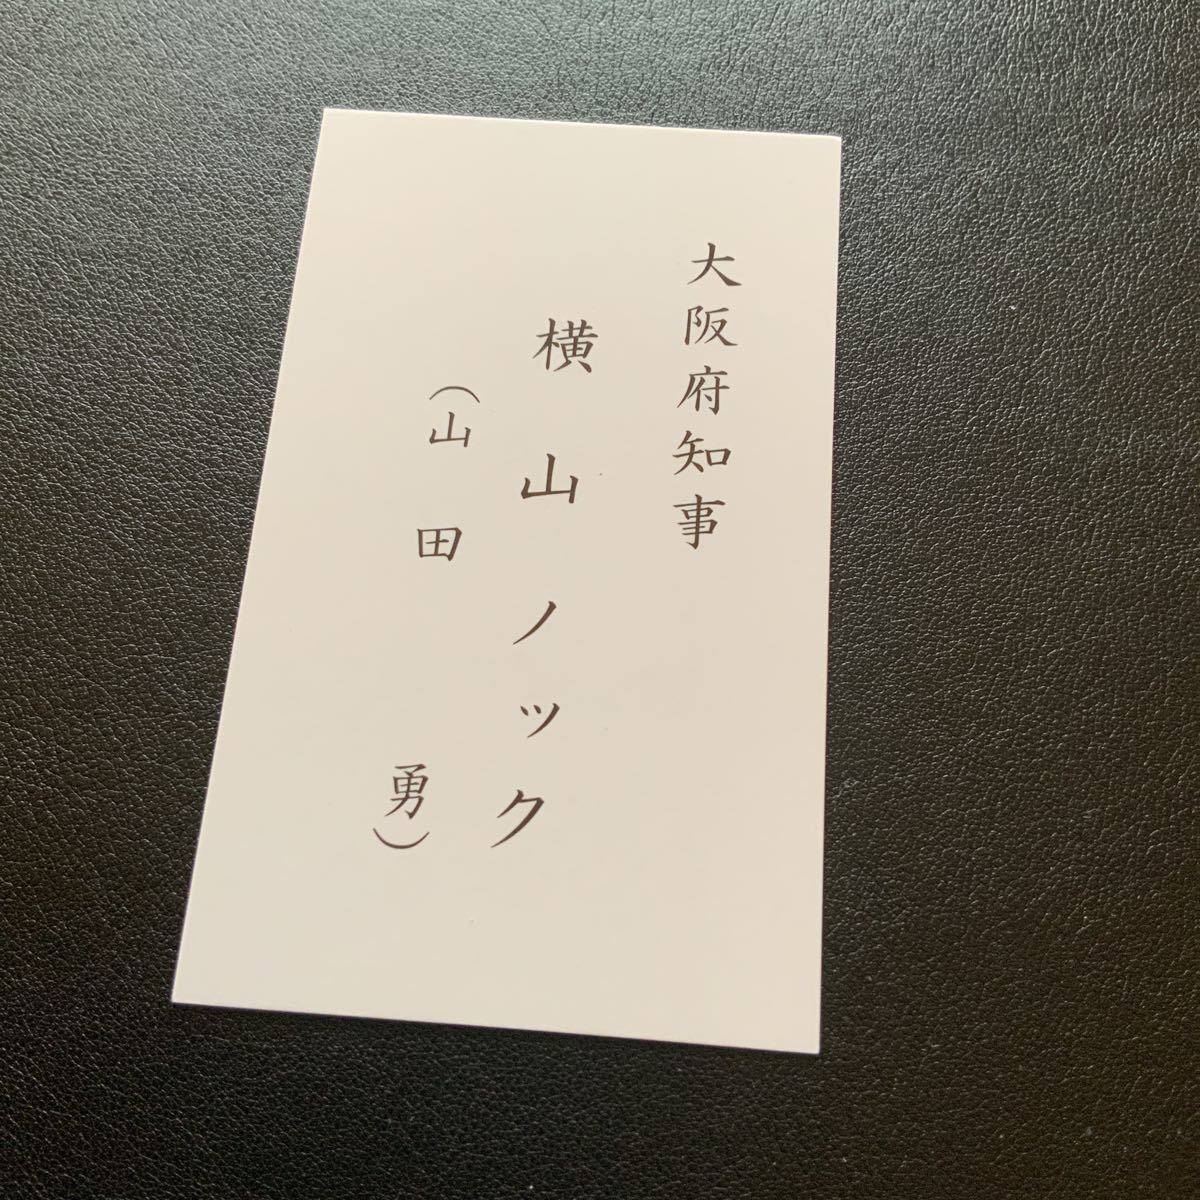 大阪府知事
横山ノック
（山田勇）